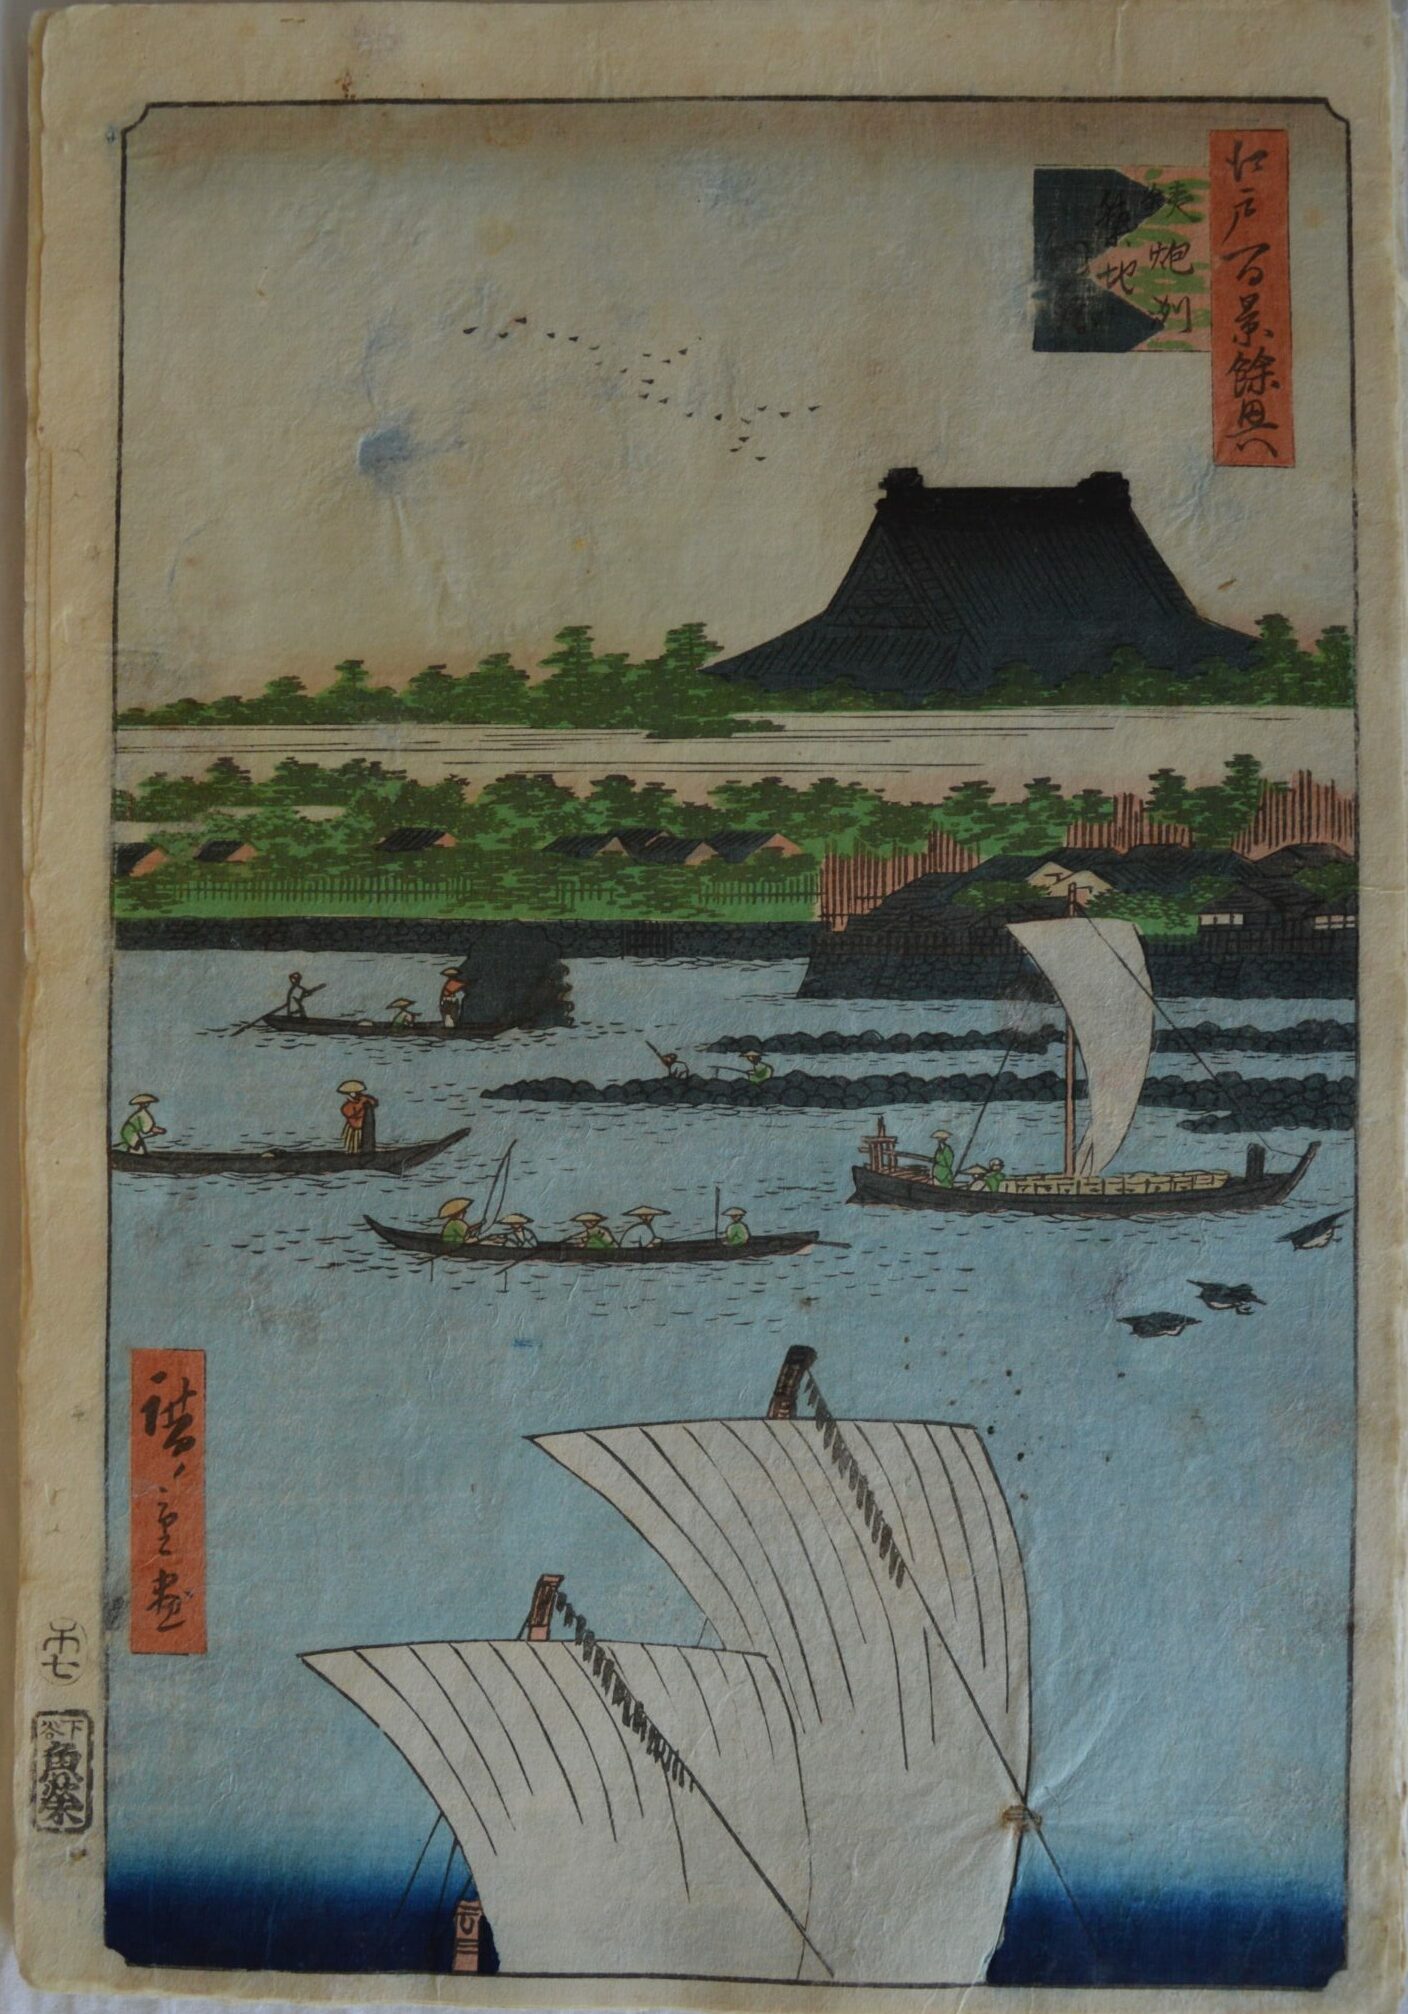 江戸百景餘興
鉄炮洲
築地
門跡
廣重画
十七
下谷
魚栄